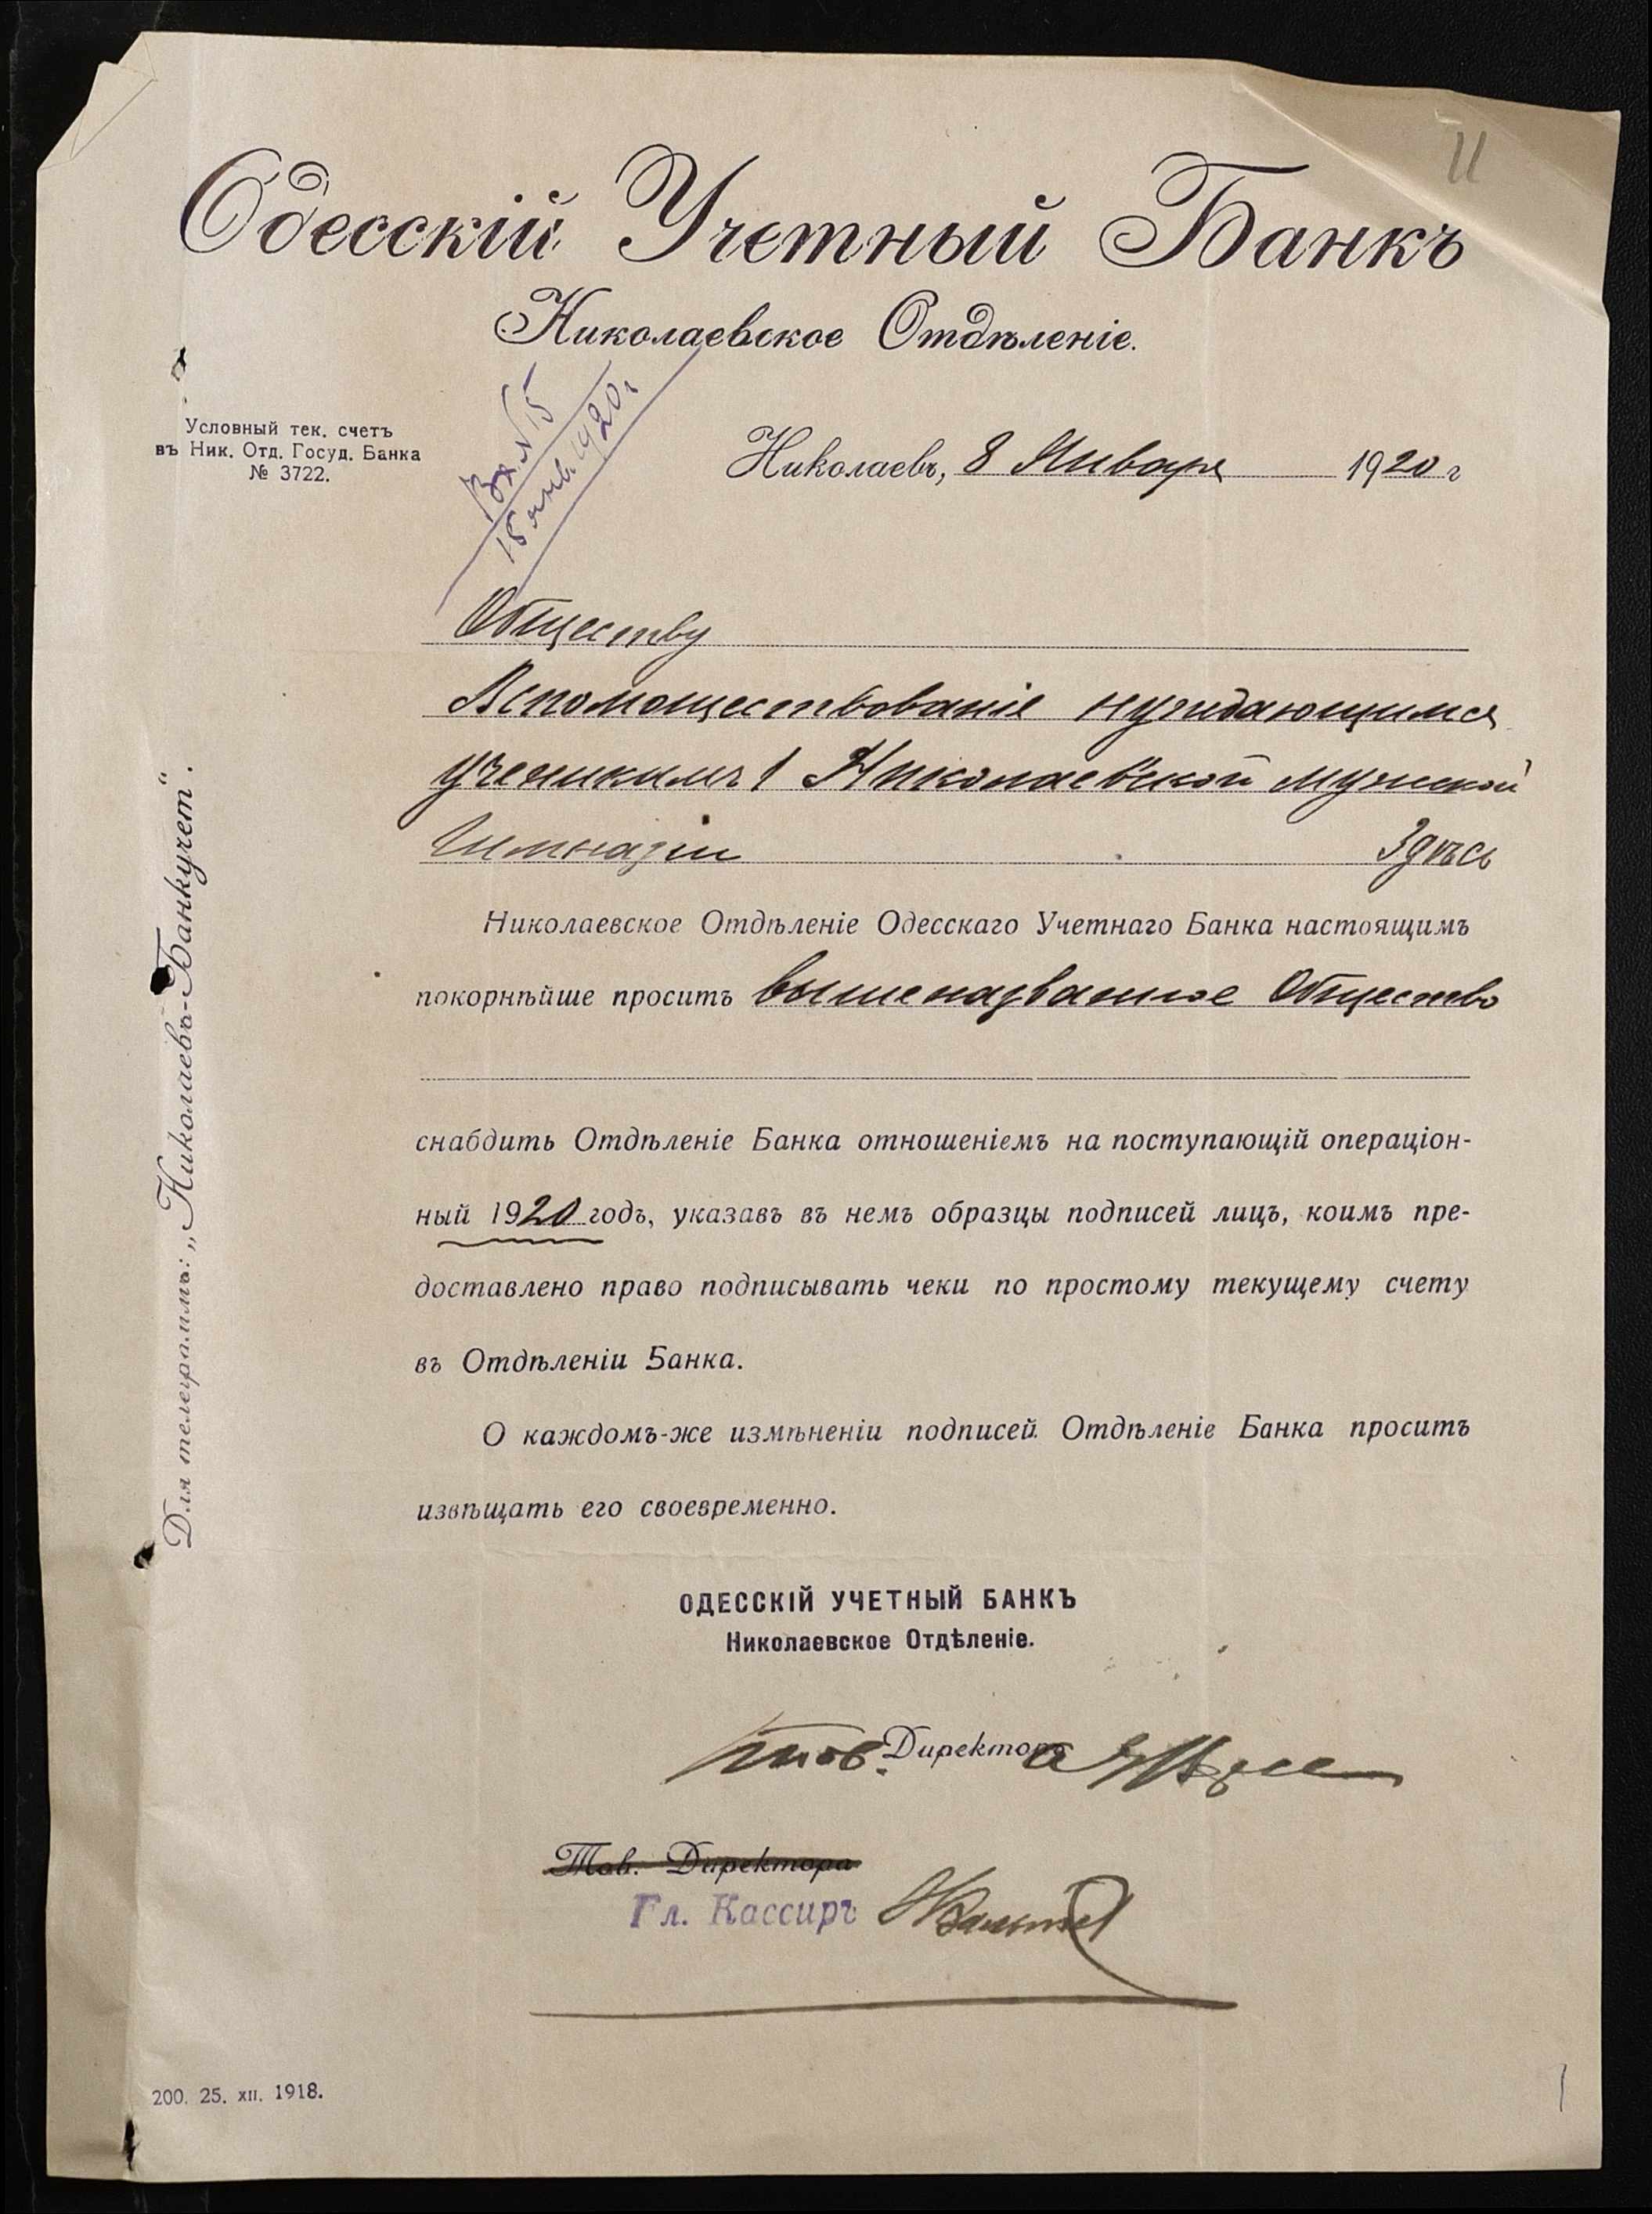 11
Одесскій Учетный Банкъ
Николаевское Отдѣленіе.
Условный тек. счетъ
въ Ник. Отд. Госуд. Банка
№ 3722.
Вх. № 15
18 янв. 1920 г
Николаевъ, 8 Января 1920 г
Обществу
Вспомоществованія нуждающимся
ученикамъ 1 Николаевской мужской
Гимназіи Здѣсь
Николаевское Отдѣленіе Одесскаго Учетнаго Банка настоящимъ
покорнѣйше проситъ вышеназванное Общество
снабдить Отдѣленіе Банка отношеніемъ на поступающій операціон-
ный 1920 годъ, указавъ въ немъ образцы подписей лицъ, коимъ пре-
доставлено право подписывать чеки по простому текущему счету
въ Отдѣленіи Банка.
О каждомъ-же измѣненіи подписей Отдѣленіе Банка проситъ
извѣщать его своевременно.
ОДЕССКІЙ УЧЕТНЫЙ БАНКЪ
Николаевское Отдѣленіе.
Тов. Директора
Тов. Директора
Гл. Кассиръ
Для телеграммъ: „Николаевъ-Банкучет".
200. 25. XII. 1918.